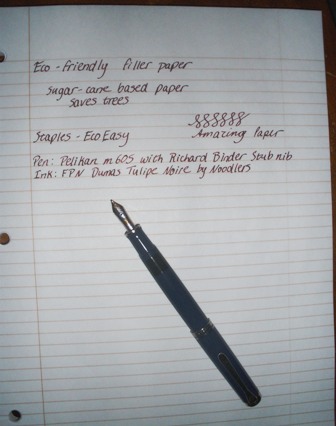 Eco-friendly filler paper
Sugar-cane based paper
saves trees
Staples - EcoEasy
Amazing Paper
Pen: Pelikan m605 with Richard Binder Stub nib
Ink: FPN Dumas Tulipe Noire by Noodlers